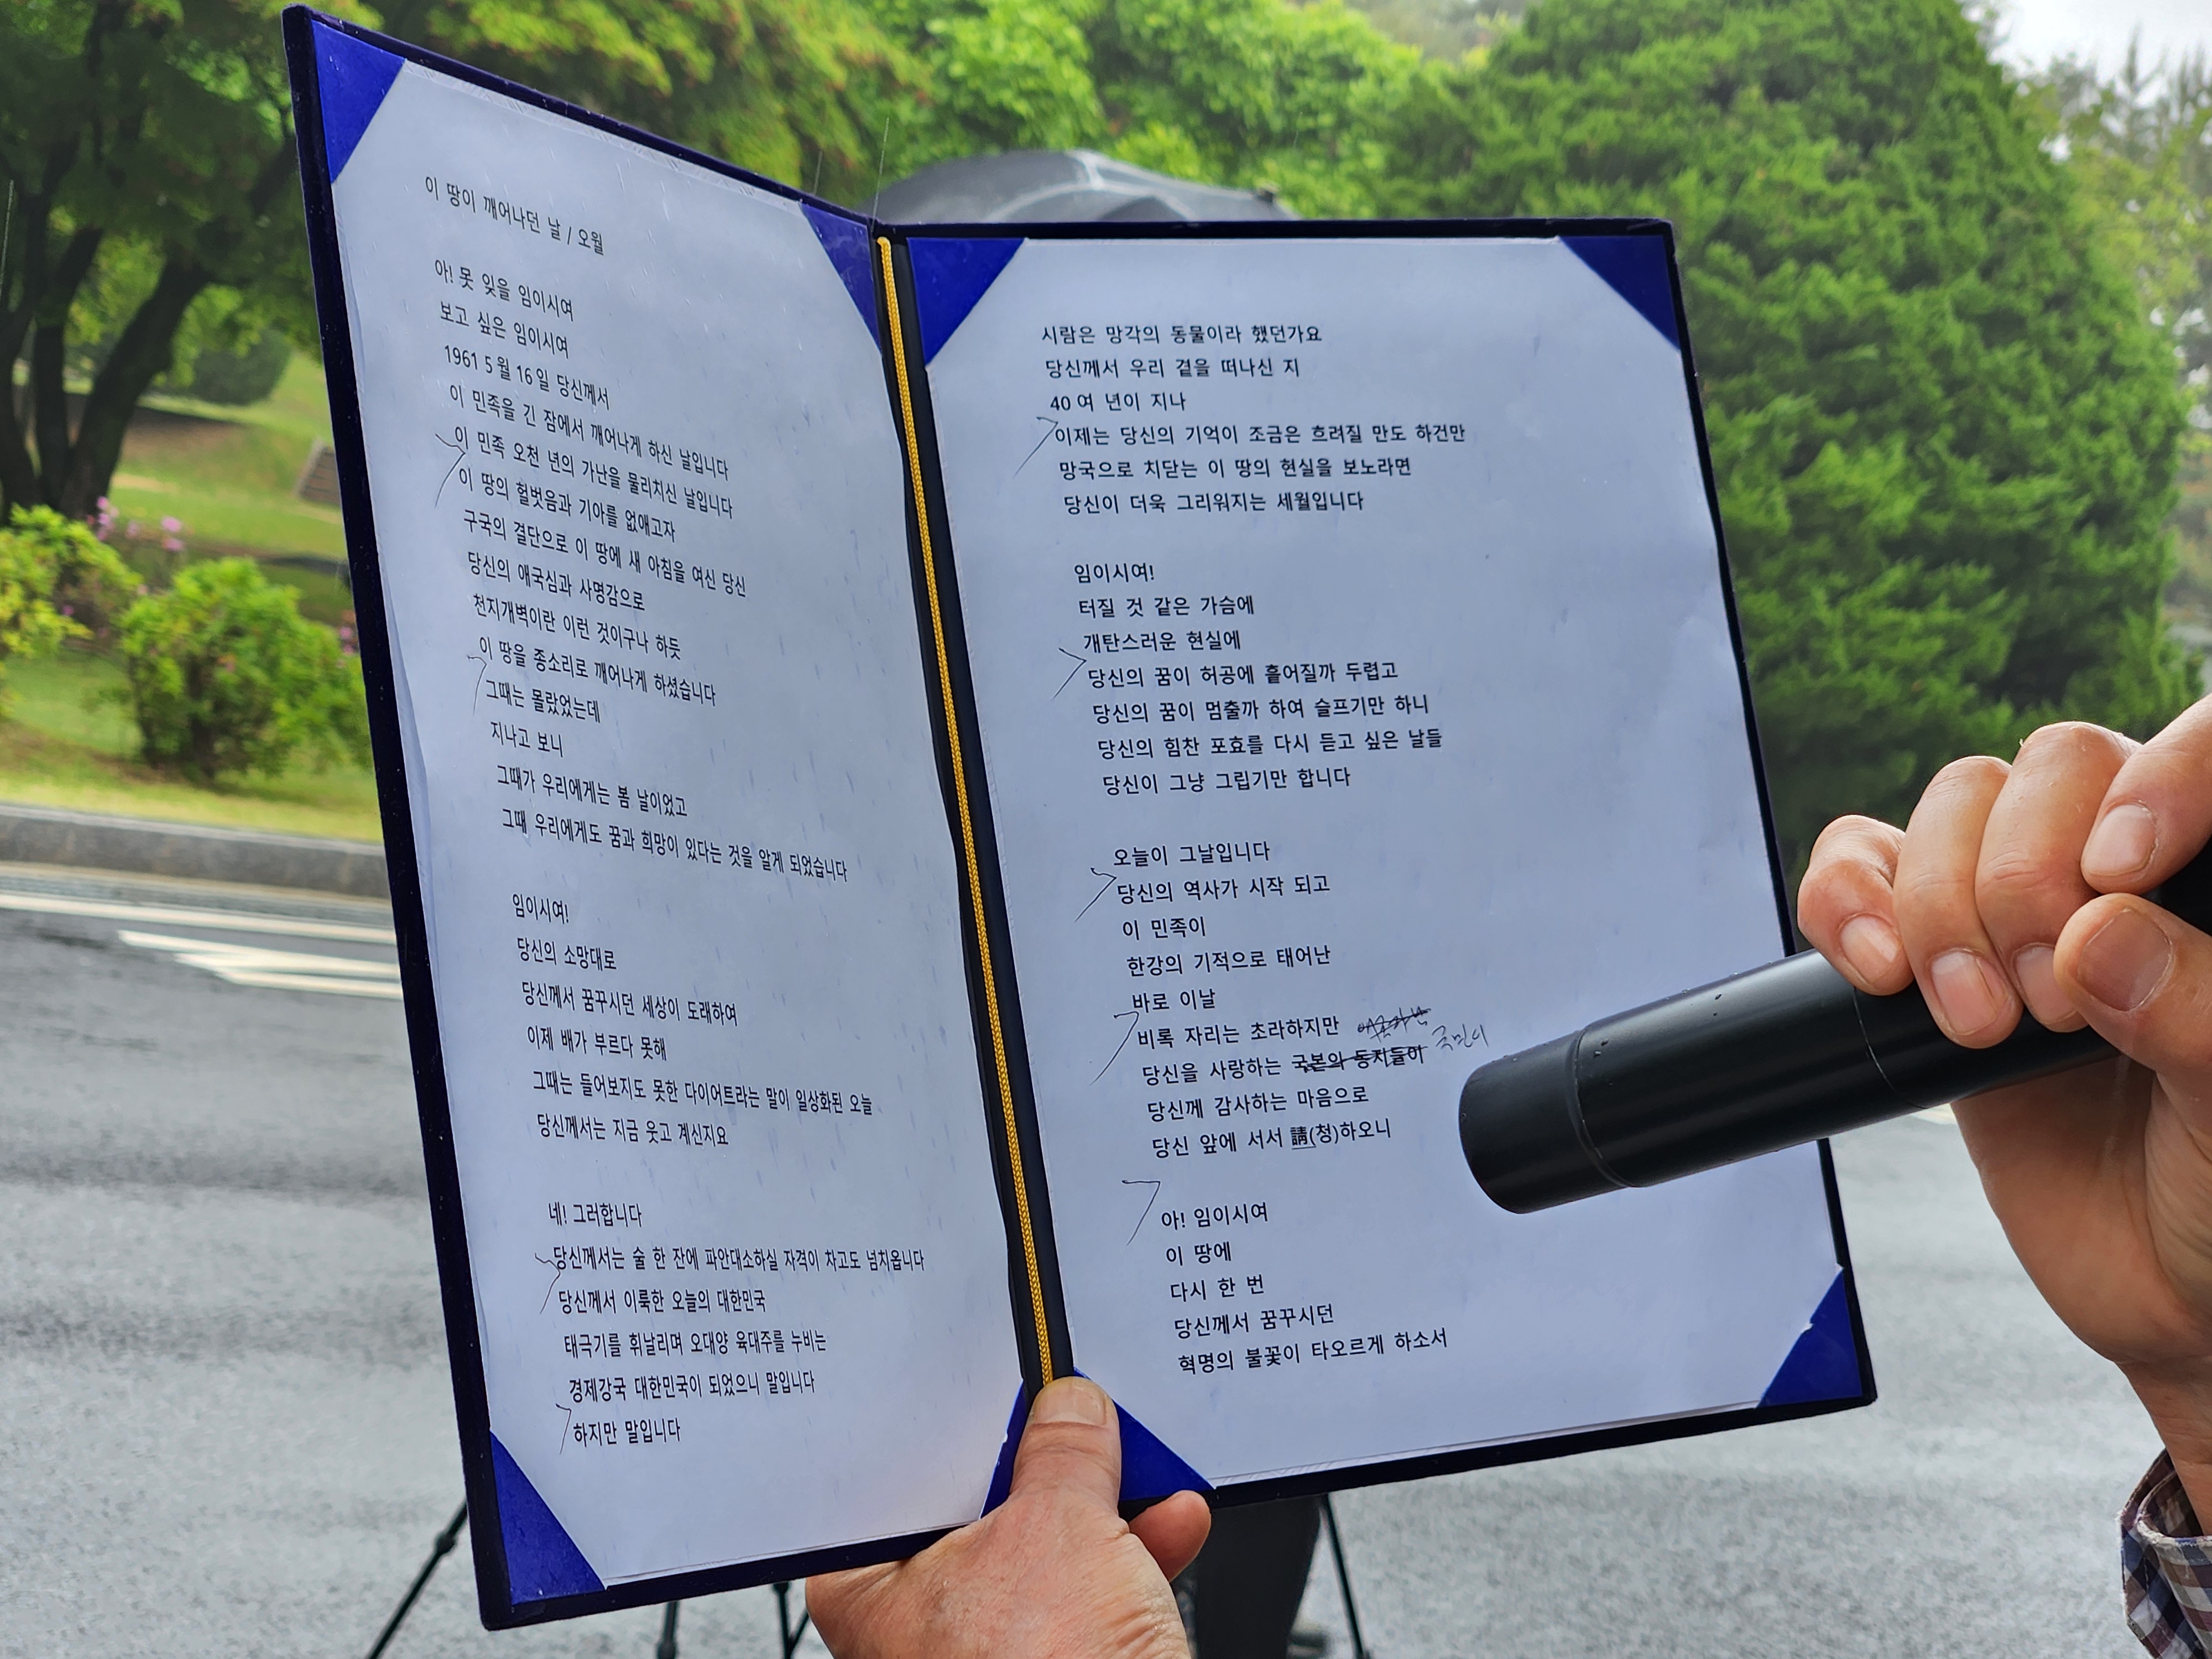 이 땅이 깨어나던 날 / 오월
아! 못 잊을 임이시여
보고 싶은 임이시여
1961 5월 16일 당신께서
이 민족을 긴 잠에서 깨어나게 하신 날입니다
이 민족 오천 년의 가난을 물리치신 날입니다
이 땅의 헐벗음과 기아를 없애고자
구국의 결단으로 이 땅에 새 아침을 여신 당신
당신의 애국심과 사명감으로
천지개벽이란 이런 것이구나 하듯
이 땅을 종소리로 깨어나게 하셨습니다
그때는 몰랐었는데
지나고 보니
그때가 우리에게는 봄 날이었고
그때 우리에게도 꿈과 희망이 있다는 것을 알게 되었습니다
임이시여!
당신의 소망대로
당신께서 꿈꾸시던 세상이 도래하여
이제 배가 부르다 못해
그때는 들어보지도 못한 다이어트라는 말이 일상화된 오늘
당신께서는 지금 웃고 계신지요
네! 그러합니다
당신께서는 술 한 잔에 파안대소하실 자격이 차고도 넘치옵니다
당신께서 이룩한 오늘의 대한민국
태극기를 휘날리며 오대양 육대주를 누비는
경제강국 대한민국이 되었으니 말입니다
하지만 말입니다
시람은 망각의 동물이라 했던가요
당신께서 우리 곁을 떠나신 지
40여 년이 지나
이제는 당신의 기억이 조금은 흐려질 만도 하건만
망국으로 치닫는 이 땅의 현실을 보노라면
당신이 더욱 그리워지는 세월입니다
임이시여!
터질 것 같은 가슴에
개탄스러운 현실에
당신의 꿈이 허공에 흩어질까 두렵고
당신의 꿈이 멈출까 하여 슬프기만 하니
당신의 힘찬 포효를 다시 듣고 싶은 날들
당신이 그냥 그립기만 합니다
오늘이 그날입니다
당신의 역사가 시작 되고
이 민족이
한강의 기적으로 태어난
바로 이날
비록 자리는 초라하지만
당신을 사랑하는 국본의 동지들이 국민이
당신께 감사하는 마음으로
당신 앞에 서서 請(청)하오니
아! 임이시여
이 땅에
다시 한 번
당신께서 꿈꾸시던
혁명의 불꽃이 타오르게 하소서